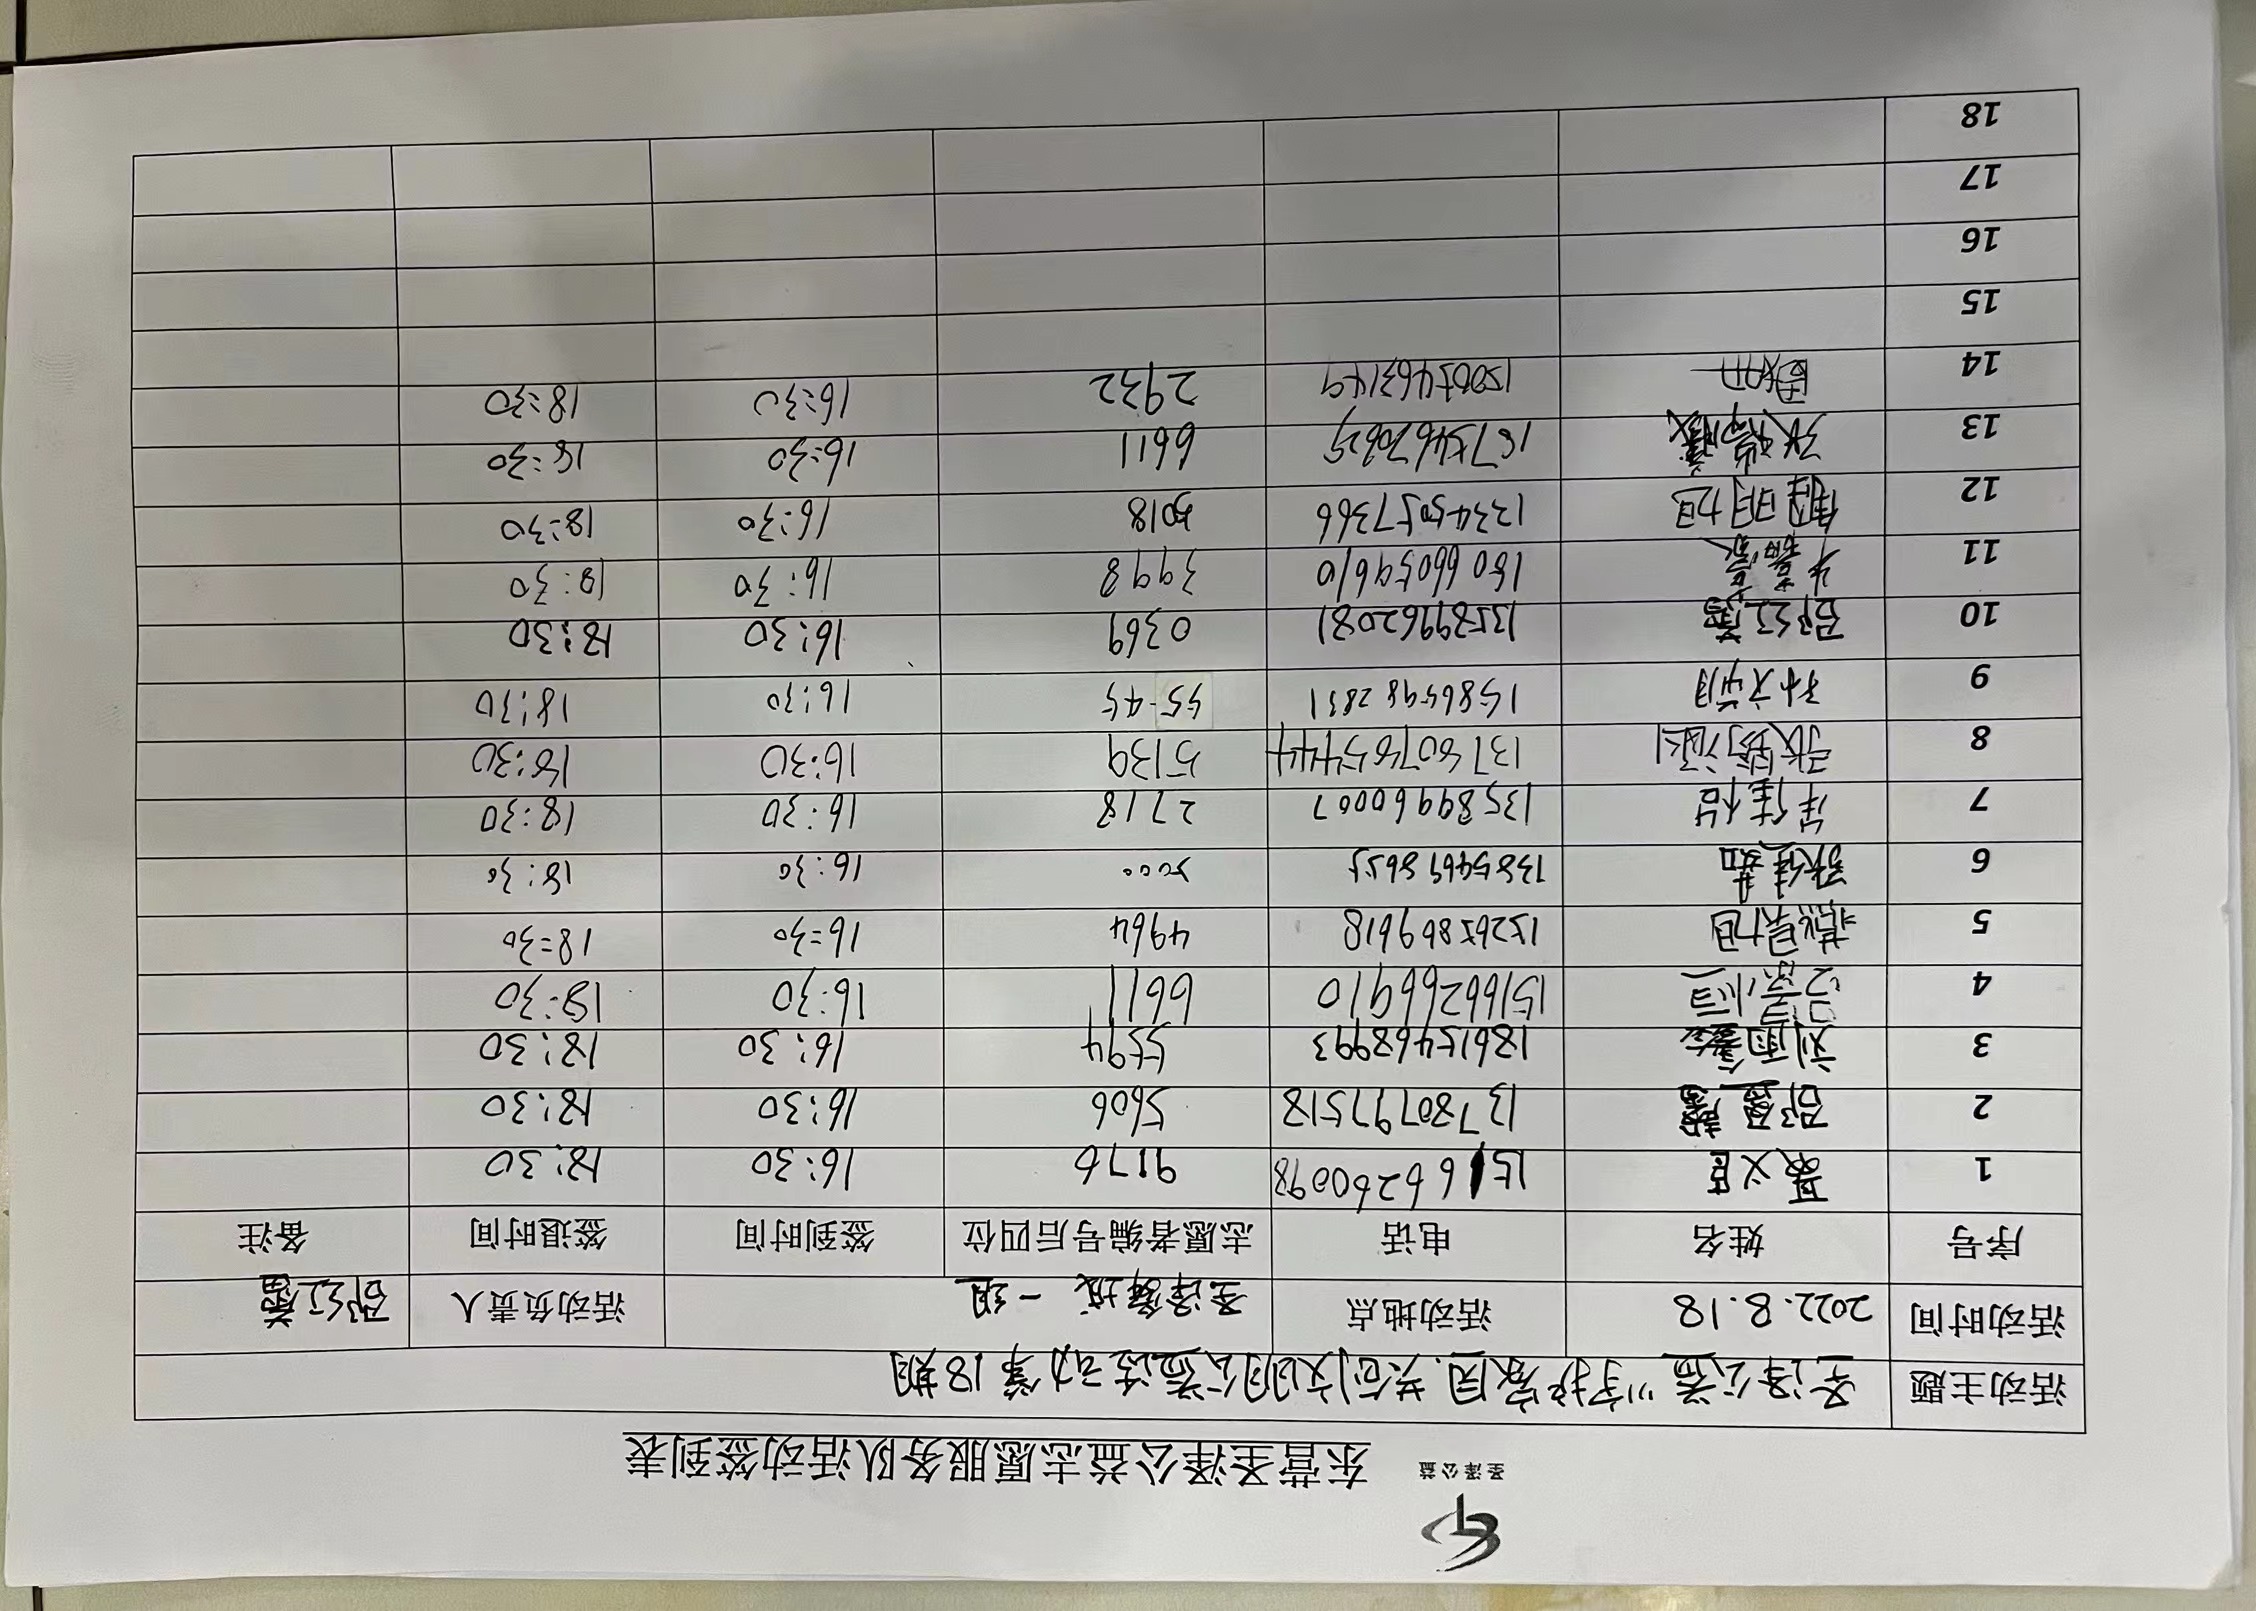 圣泽公益
东营圣泽公益志愿服务队活动签到表
活动主题 圣泽公益"守护家园.共创文明公益活动第18期
活动时间 2022.8.18 活动地点 圣泽舞城 一组 活动负责人 邵红蕾
序号 姓名 电话 志愿者编号后四位 签到时间 签退时间 备注
1 聂义臣 15166260098 9176 16:30 18:30
2 邵盈馨 13780797518 5606 16:30 18:30
3 刘雨鑫 18615468993 5594 16:30 18:30
4 15166266910 6611 16:30 18:30
5 裴昊旭 15265869618 4964 16:30 18:30
6 张佳茹 13854698655 16:30 18:30
7 牟佳怡 13589960007 2718 16:30 18:30
8 张皓涵 5139 16:30 18:30
9 孙文朔 15865982831 5545 16:30 18:30
10 邵红蕾 13589962081 0369 16:30 18:30
11 18066059610 3998 16:30 18:30
12 明旭 13345057366 5018 16:30 18:30
13 6611 16:30 18:30
14 15005463149 2932 16:30 18:30
15
16
17
18